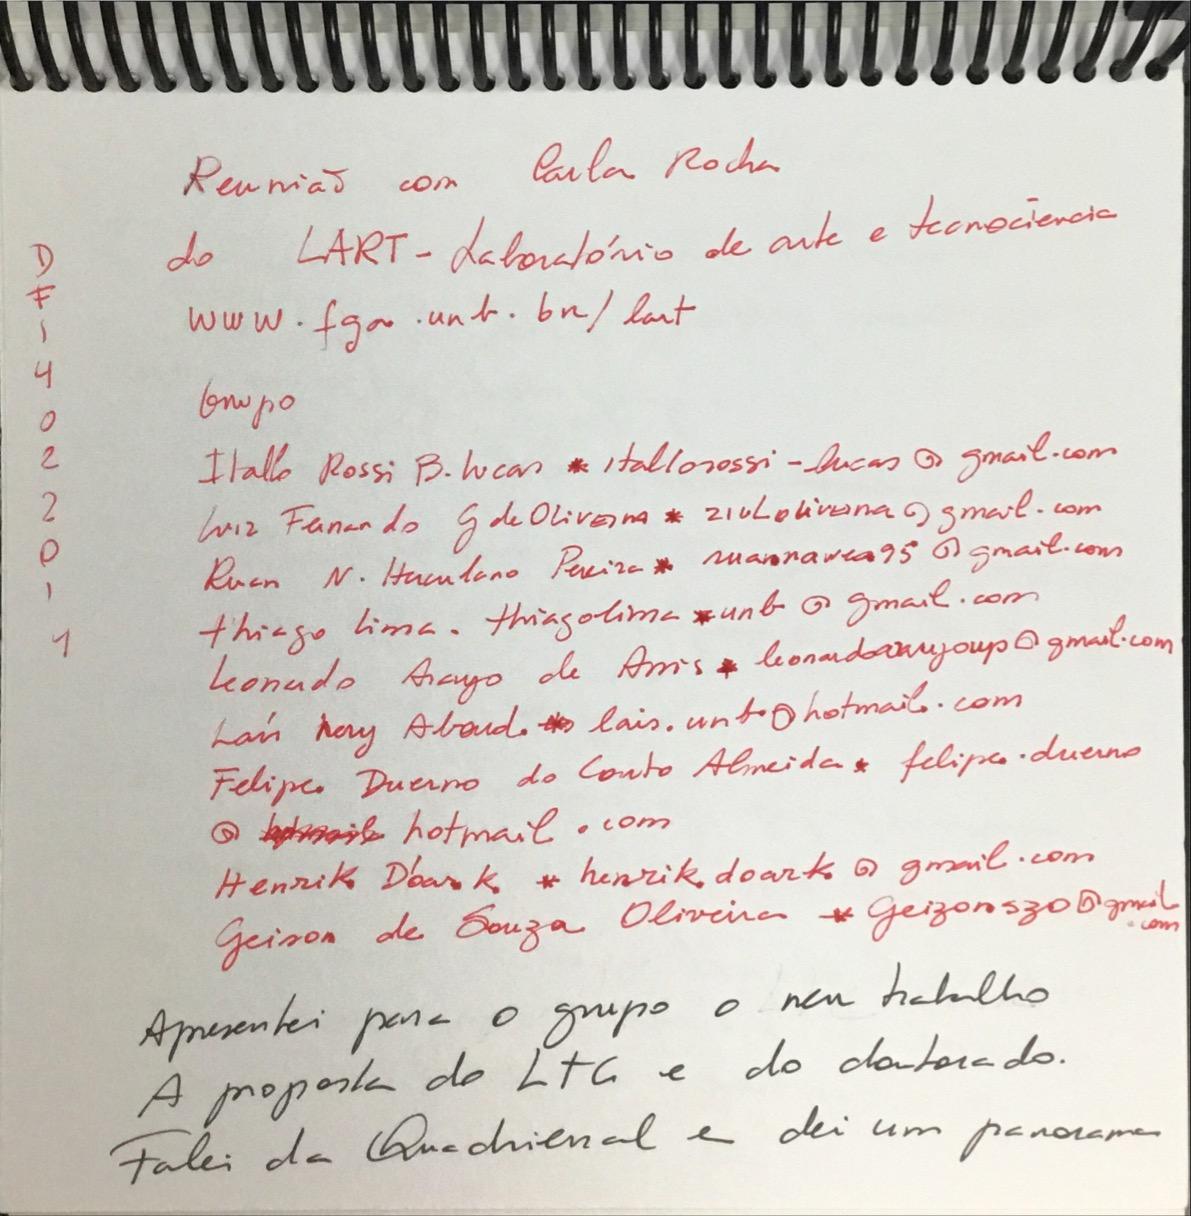 Reunião com Carla Rocha
do LART - Laboratório de arte e tecnociência
www.fga.unb.br/lart
Grupo
Itallo Rossi B. Lucas * itallorossi-lucas@gmail.com
Luiz Fernando G de Oliveira * ziuloliveira@gmail.com
Ruan N. Herculano Pereira * @gmail.com
Thiago Lima. thiagolima*unb@gmail.com
Leonardo Arayo de Assis * leonardoaraujoup@gmail.com
Laís Nery Aboud. * lais.unb@hotmail.com
Felipe Duerno do Couto Almeida * felipe.duerno
@ hotmail.com
Henrik D'oark * henrik.doark@gmail.com
Geison de Souza Oliveira * @gmail
.com
Apresentei para o grupo o meu trabalho
A proposta do LTG e do doutorado.
Falei da Quadrienal e dei um panorama
D
F
1
4
0
2
2
0
1